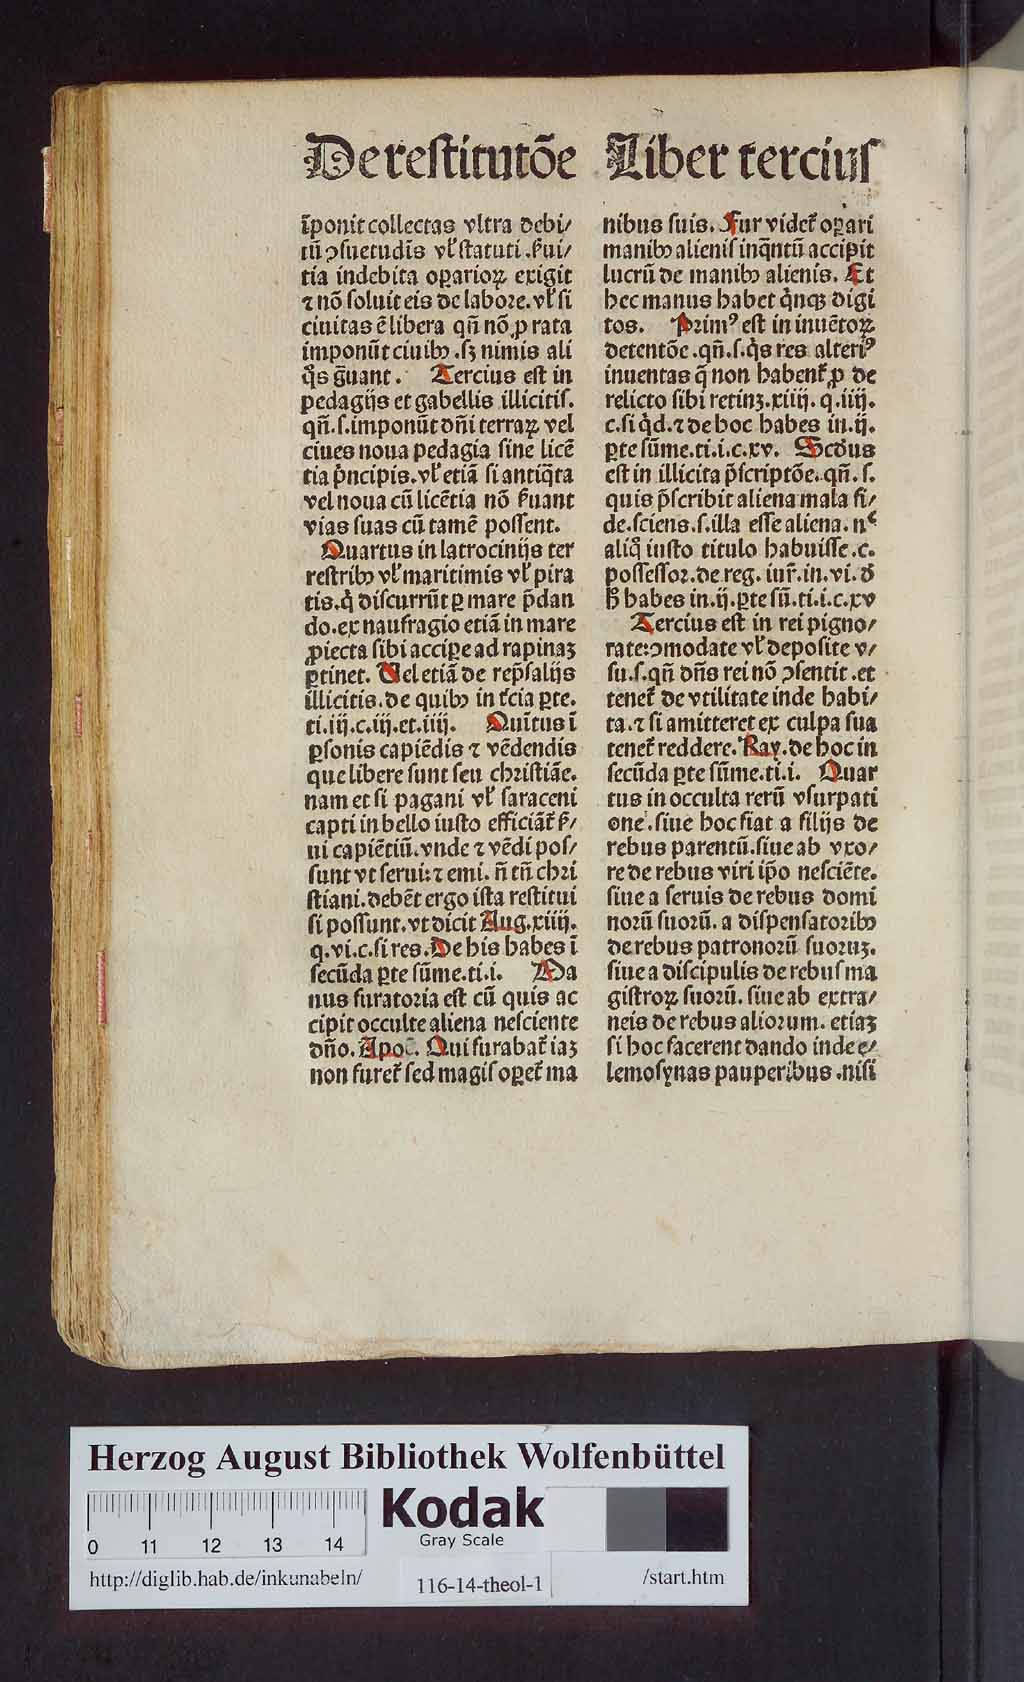 De restitutõe Liber tercius
ĩponit collectas vltra debi/
tũ ꝯsuetudĩs vľ statuti. ẜui/
tia indebita oꝑarioꝝ exigit
⁊ nõ soluit eis de labore. vľ si
ciuitas ẽ libera qñ nõ ꝓ rata
imponũt ciuibꝫ. sꝫ nimis ali
q̃s g̃uant. Tercius est in
pedagijs et gabellis illicitis.
qñ. s. imponũt dñi terraꝝ vel
ciues noua pedagia sine licẽ
tia pͥncipis. vľ etiã si antiq̃ta
vel noua cũ licẽtia nõ ẜuant
vias suas cũ tamẽ possent.
Quartus in latrocinijs ter
restribꝫ vľ maritimis vľ pira
tis. qͥ discurrũt ꝑ mare p̃dan
do. ex naufragio etiã in mare
ꝓiecta sibi accipe ad rapinaꝫ
ꝑtinet. Uel etiã de rep̃salijs
illicitis. de quibꝫ in tͨcia ꝑte.
ti. iij. c. iij. et. iiij. Quĩtus ĩ
ꝑsonis capiẽdis ⁊ vẽdendis
que libere sunt seu christiãe.
nam et si pagani vľ saraceni
capti in bello iusto efficiãt᷑ ẜ/
ui capiẽtiũ. vnde ⁊ vẽdi pos/
sunt vt serui: ⁊ emi. ñ tñ chri
stiani. debẽt ergo ista restitui
si possunt. vt dicit Aug. xiiij.
q. vi. c. si res. De his habes ĩ
secũda ꝑte sũme. ti. i. Ma
nus furatoria est cũ quis ac
cipit occulte aliena nesciente
dño. Apoc̃. Qui furabat᷑ iaꝫ
non furet᷑ sed magis oꝑet᷑ ma
nibus suis. Fur videt᷑ oꝑari
manibꝫ alienis inq̃ntũ accipit
lucrũ de manibꝫ alienis. Et
hec manus habet qͥnqꝫ digi
tos. Primꝰ est in inuẽtoꝝ
detentõe. qñ. s. qͥs res alteriꝰ
inuentas q̃ non habent᷑ ꝓ de
relicto sibi retinꝫ. xiiij. q. iiij.
c. si qͥd. ⁊ de hoc habes in. ij.
ꝑte sũme. ti. i. c. xv. Scḋus
est in illicita p̃scriptõe. qñ. s.
quis p̃scribit aliena mala fi/
de. sciens. s. illa esse aliena. nͨ
aliqͦ iusto titulo habuisse. c.
possessor. de reg. iuř. in. vi. ď
ħ habes in. ij. ꝑte sũ. ti. i. c. xv
Tercius est in rei pigno/
rate: ꝯmodate vľ deposite v/
su. s. qñ dñs rei nõ ꝯsentit. et
tenet᷑ de vtilitate inde habi/
ta. ⁊ si amitteret ex culpa sua
tenet᷑ reddere. Ray. de hoc in
secũda ꝑte sũme. ti. i. Quar
tus in occulta rerũ vsurpati
one. siue hoc fiat a filijs de
rebus parentũ. siue ab vxo/
re de rebus viri ip̃o nesciẽte.
siue a seruis de rebus domi
norũ suorũ. a dispensatoribꝫ
de rebus patronorũ suoruꝫ.
siue a discipulis de rebus ma
gistroꝝ suorũ. siue ab extra/
neis de rebus aliorum. etiaꝫ
si hoc facerent dando inde e/
lemosynas pauperibus. nisi
Herzog August Bibliothek Wolfenbüttel
0 11 12 13 14
Kodak
Gray Scale
http://diglib.hab.de/inkunabeln/ 116-14-theol-1 /start.htm